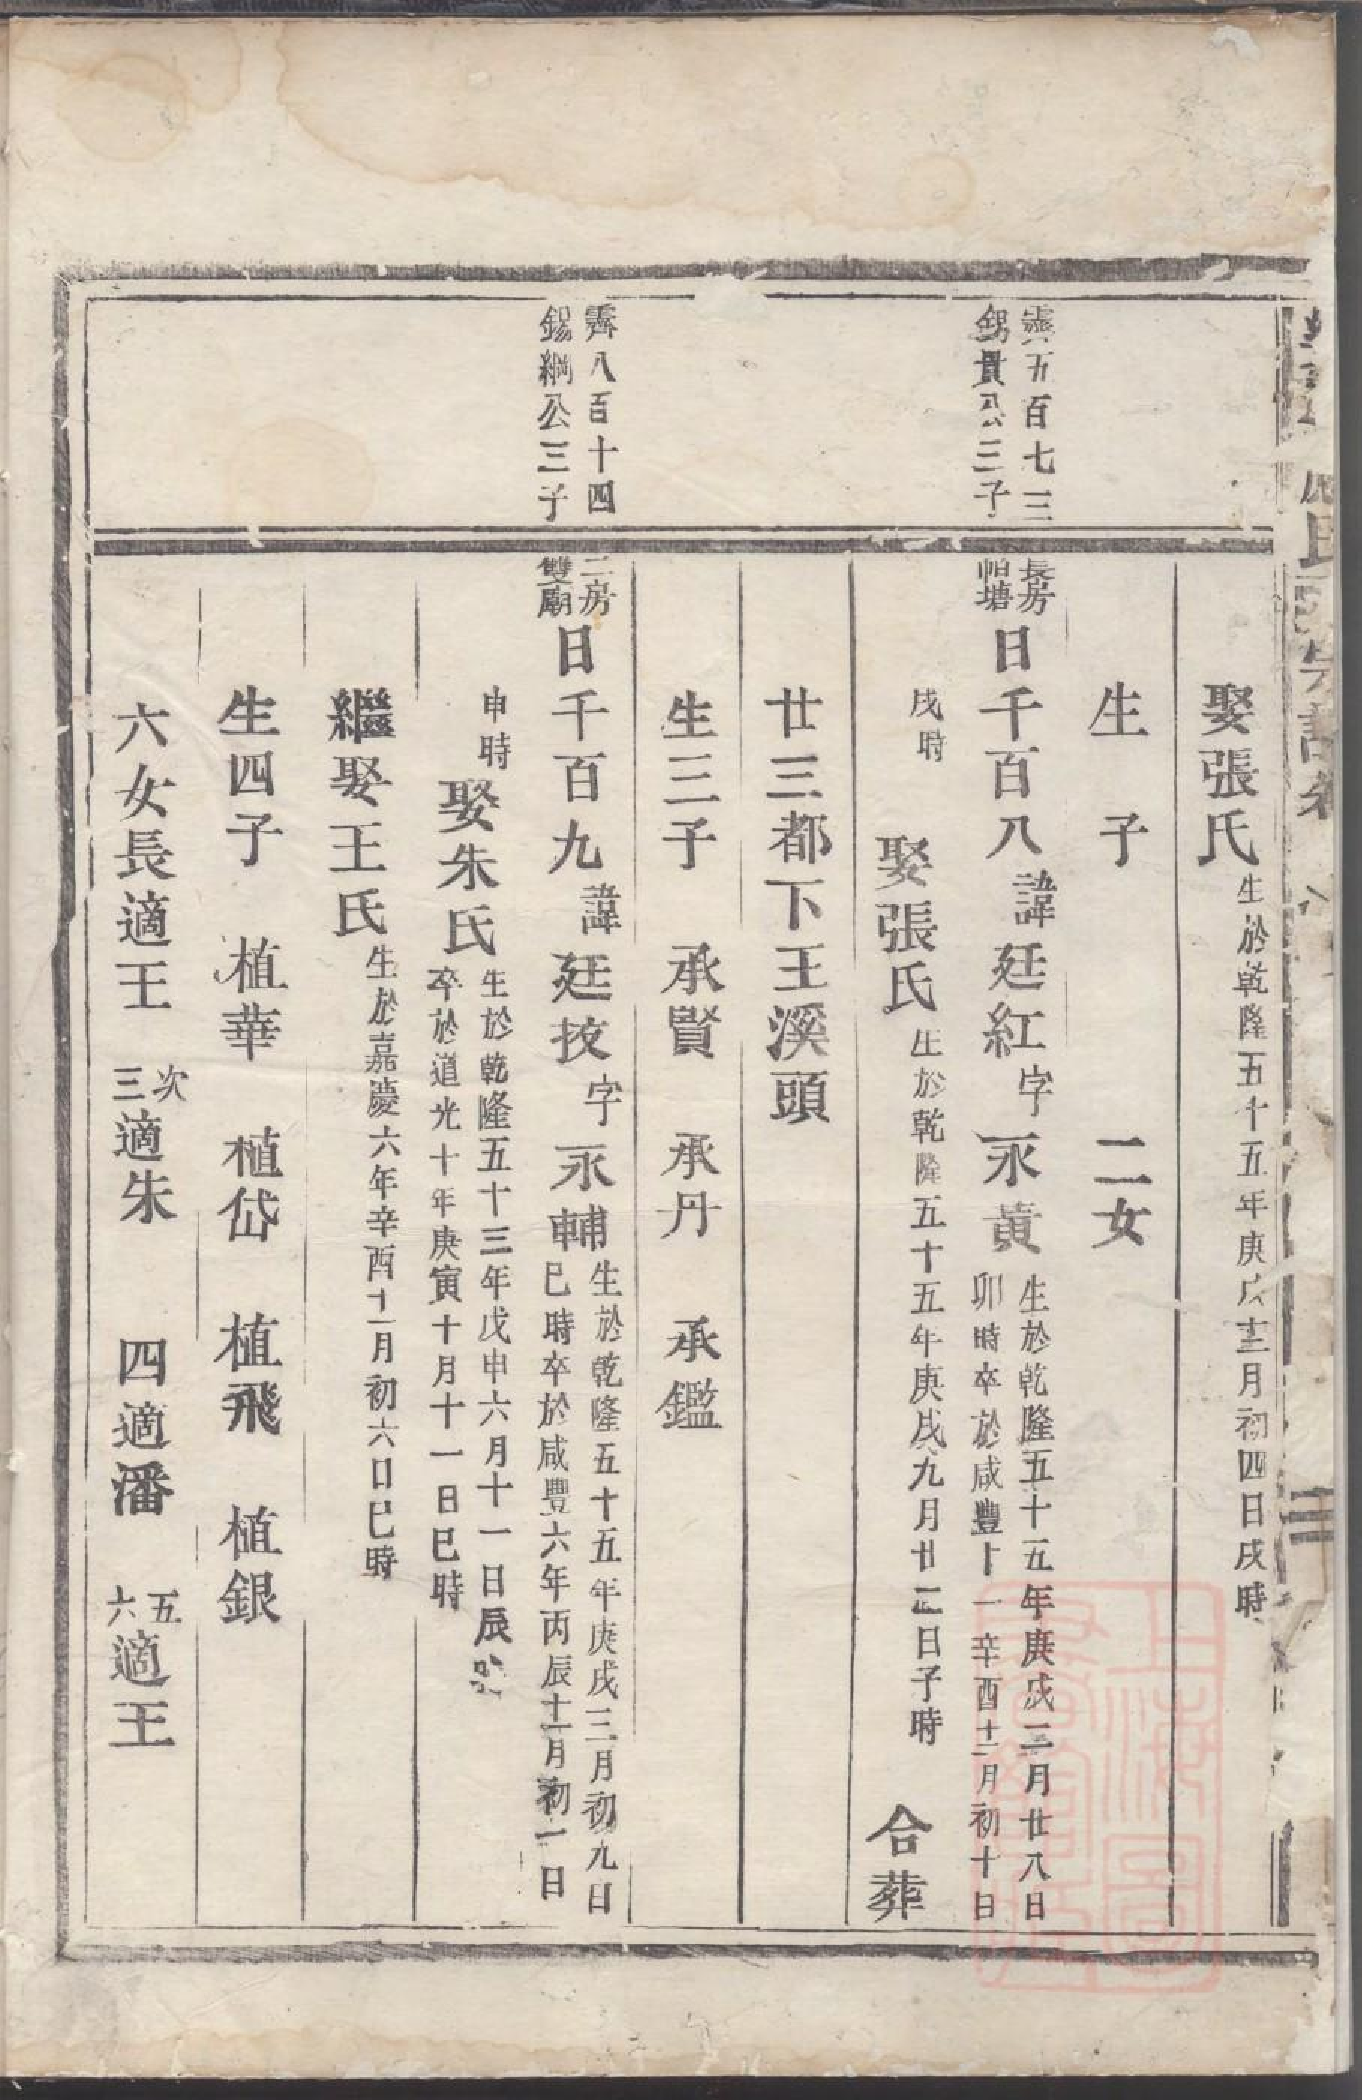 娶張氏
生於乾隆五十五年庚戌十二月初四日戌時
生 子 二女
霽五百七三
錫貴公三子
長房
帕塘
日千百八諱廷紅字永黃
生於乾隆五十五年庚戌三月廿八日
卯時卒於咸豐十一辛酉十二月初十日
戌時
娶張氏
生於乾隆五十五年庚戌九月廿二日子時
合葬
廿三都下王溪頭
生三子 承賢 承丹 承鑑
霽八百十四
錫綱公三子
二房
雙廟
日千百九諱廷技字永輔
生於乾隆五十五年庚戌三月初九日
巳時卒於咸豐六年丙辰十一月初一日
申時
娶朱氏
生於乾隆五十三年戊申六月十一日辰
卒於道光十年庚寅十月十一日巳時
繼娶王氏
生於嘉慶六年辛酉十一月初六日巳時
生四子 植華 植岱 植飛 植銀
六女長適王 次三適朱 四適潘 五六適王